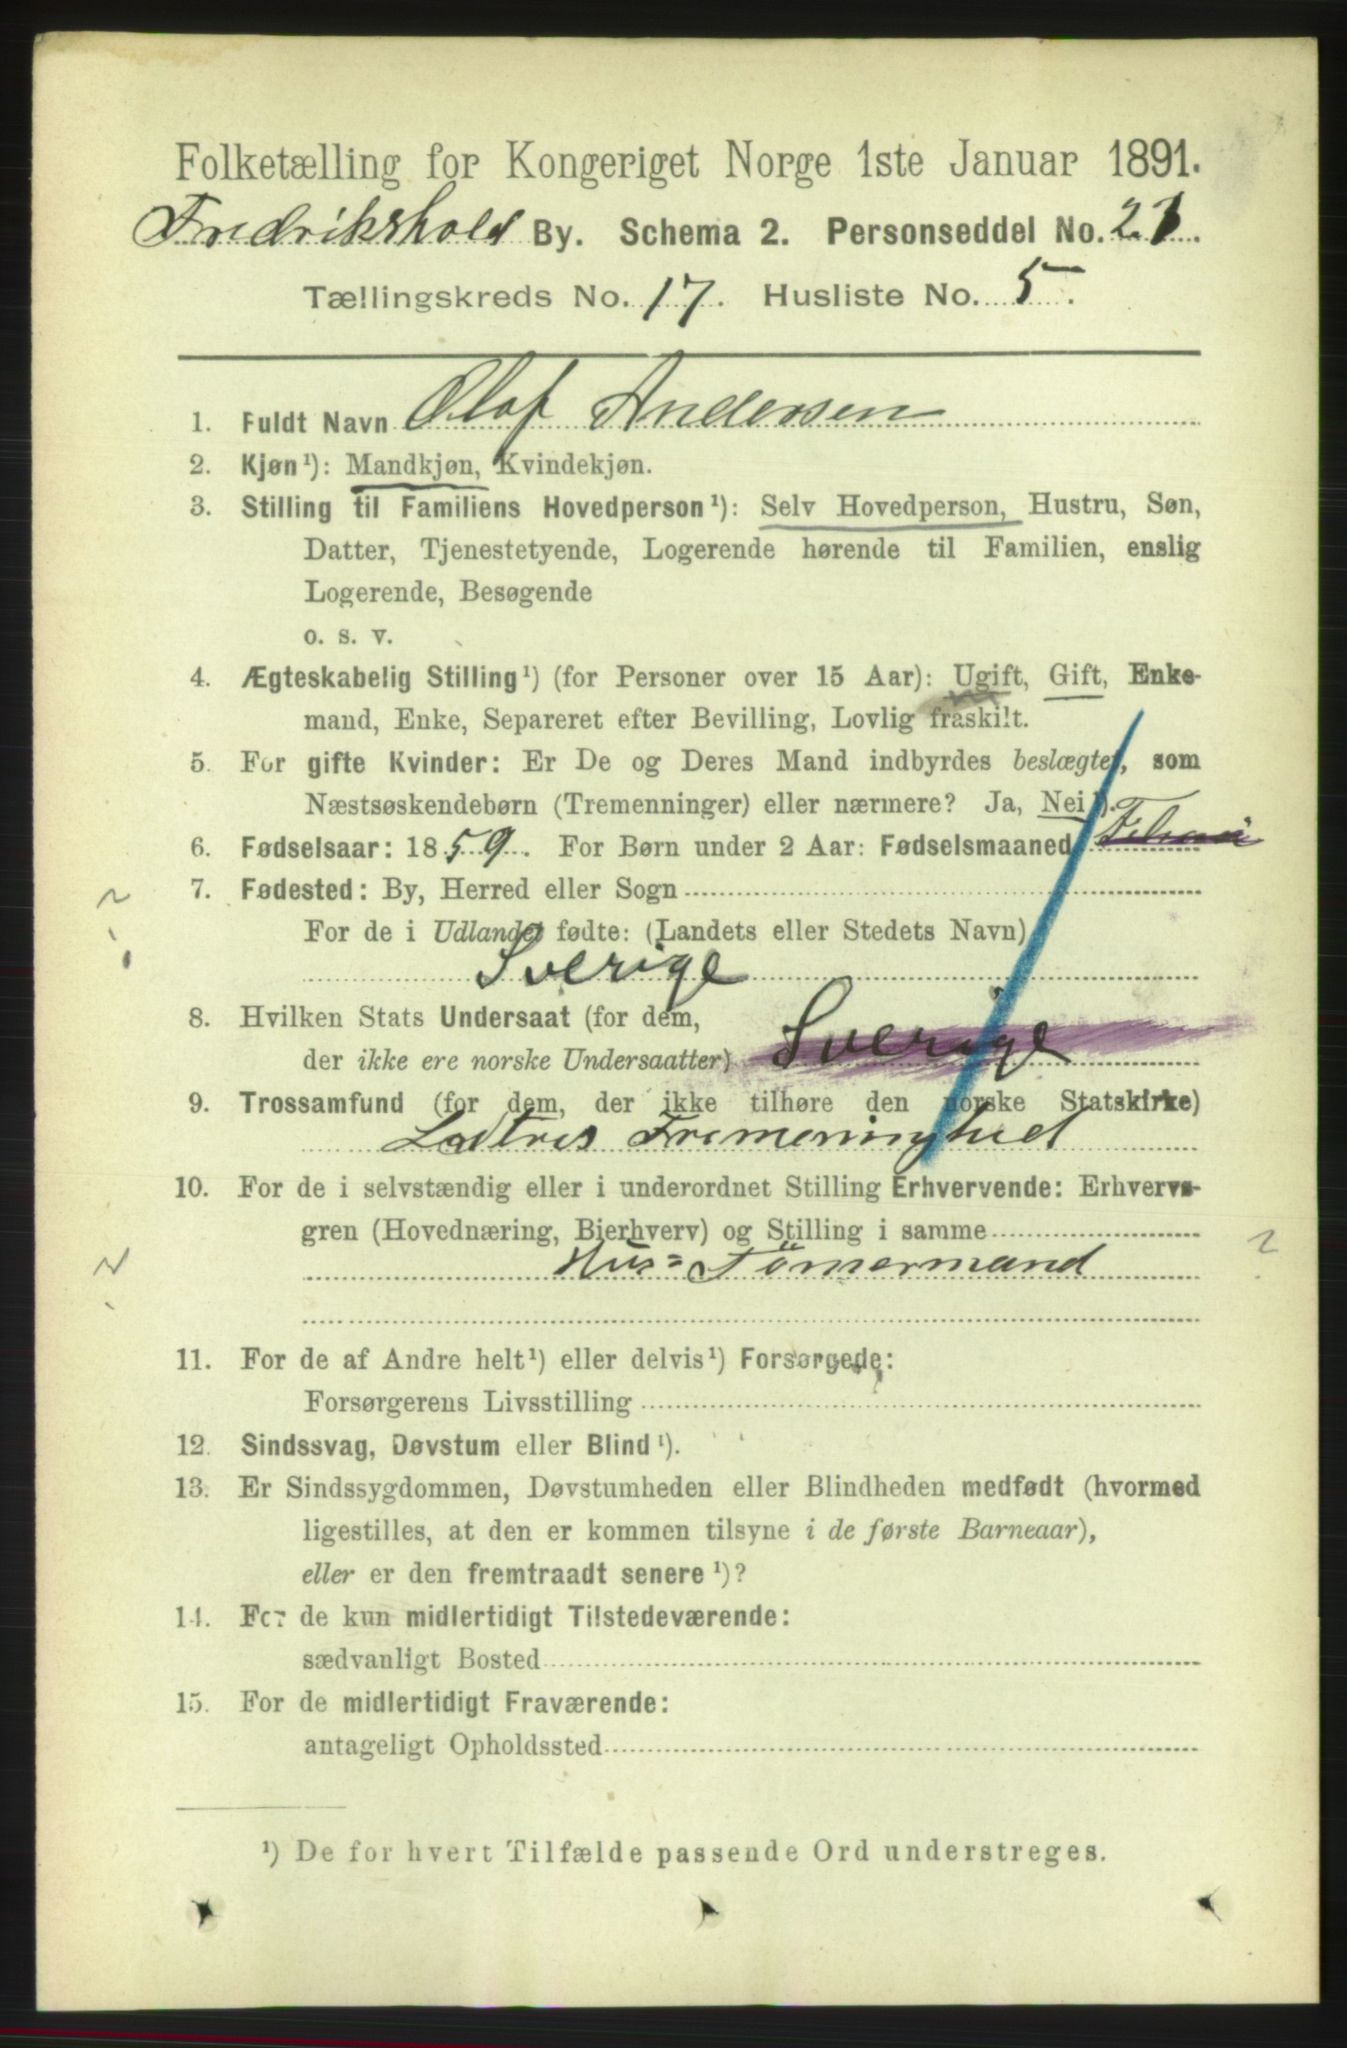 Folketælling for Kongeriget Norge 1ste Januar 1891.
Fredrikshald By. Schema 2. Personseddel No. 21.
Tællingskreds No. 17. Husliste No. 5.
1. Fuldt Navn Olaf Andersen
2. Kjøn ¹): Mandkjøn, Kvindekjøn.
3. Stilling til Familiens Hovedperson ¹): Selv Hovedperson, Hustru, Søn,
Datter, Tjenestetyende, Logerende hørende til Familien, enslig
Logerende, Besøgende
o. s. v.
4. Ægteskabelig Stilling ¹) (for Personer over 15 Aar): Ugift, Gift, Enke-
mand, Enke, Separeret efter Bevilling, Lovlig fraskilt.
5. For gifte Kvinder: Er De og Deres Mand indbyrdes beslægtet, som
Næstsøskendebørn (Tremenninger) eller nærmere? Ja, Nei ¹).
6. Fødselsaar: 1859. For Børn under 2 Aar: Fødselsmaaned
7. Fødested: By, Herred eller Sogn
For de i Udlandet fødte: (Landets eller Stedets Navn)
Sverige
8. Hvilken Stats Undersaat (for dem,
der ikke ere norske Undersaatter) Sverige
9. Trossamfund (for dem, der ikke tilhøre den norske Statskirke)
10. For de i selvstændig eller i underordnet Stilling Erhvervende: Erhvervs-
gren (Hovednæring, Bierhverv) og Stilling i samme
Hus= Tömermand
11. For de af Andre helt ¹) eller delvis ¹) Forsørgede:
Forsørgerens Livsstilling
12. Sindssvag, Døvstum eller Blind ¹).
13. Er Sindssygdommen, Døvstumheden eller Blindheden medfødt (hvormed
ligestilles, at den er kommen tilsyne i de første Barneaar),
eller er den fremtraadt senere ¹)?
14. For de kun midlertidigt Tilstedeværende:
sædvanligt Bosted
15. For de midlertidigt Fraværende:
antageligt Opholdssted
¹) De for hvert Tilfælde passende Ord understreges.